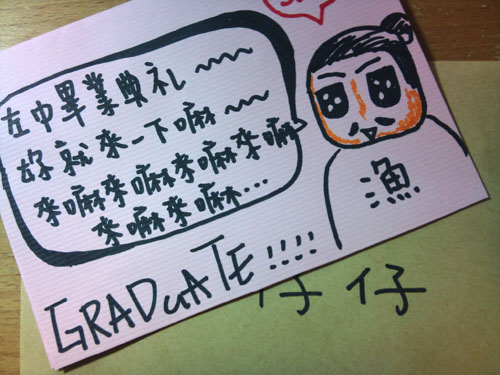 左中畢業典礼~~~
好就來一下嘛~~
來嘛來嘛來嘛來嘛
來嘛來嘛...
漁
GRADUATE!!!!
仔仔